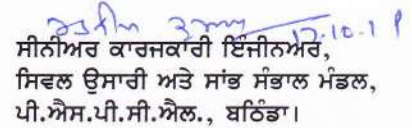 17.10.18
ਸੀਨੀਅਰ ਕਾਰਜਕਾਰੀ ਇੰਜੀਨੀਅਰ,
ਸਿਵਲ ਉਸਾਰੀ ਅਤੇ ਸਾਂਭ ਸੰਭਾਲ ਮੰਡਲ,
ਪੀ.ਐਸ.ਪੀ.ਸੀ.ਐਲ., ਬਠਿੰਡਾ।